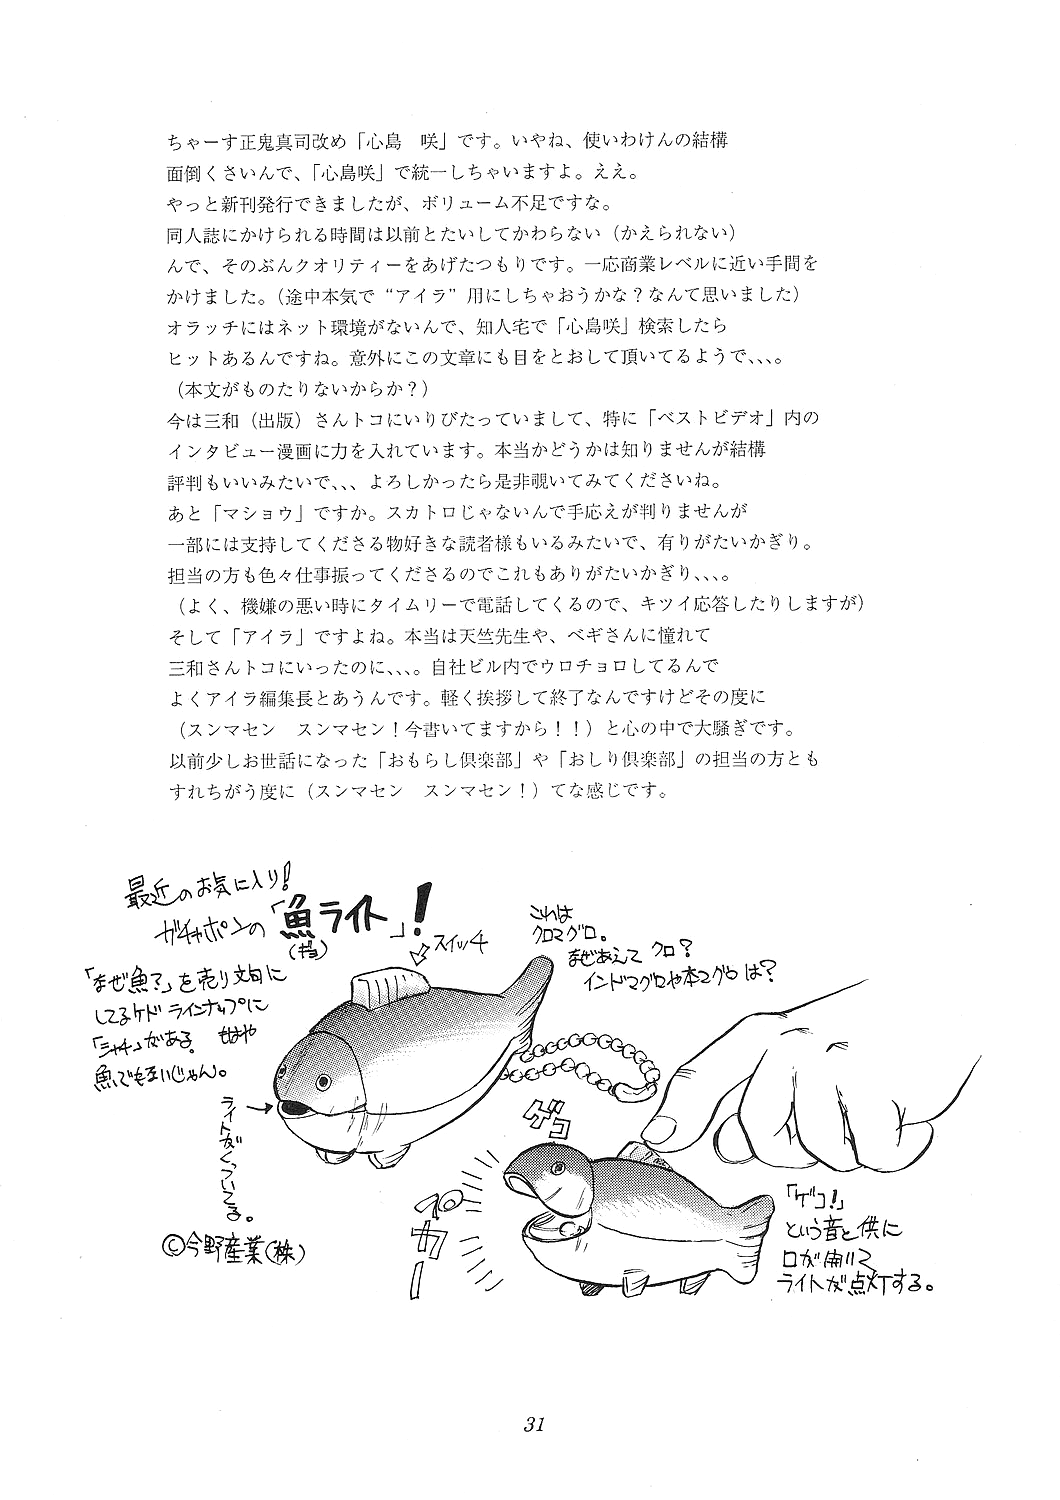 ちゃーす正鬼真司改め「心島　咲」です。いやね、使いわけんの結構
面倒くさいんで、「心島咲」で統一しちゃいますよ。ええ。
やっと新刊発行できましたが、ボリューム不足ですな。
同人誌にかけられる時間は以前とたいしてかわらない（かえられない）
んで、そのぶんクオリティーをあげたつもりです。一応商業レベルに近い手間を
かけました。（途中本気で“アイラ”用にしちゃおうかな？なんて思いました）
オラッチにはネット環境がないんで、知人宅で「心島咲」検索したら
ヒットあるんですね。意外にこの文章にも目をとおして頂いてるようで、、、。
（本文がものたりないからか？）
今は三和（出版）さんトコにいりびたっていまして、特に「ベストビデオ」内の
インタビュー漫画に力を入れています。本当かどうかは知りませんが結構
評判もいいみたいで、、、よろしかったら是非覗いてみてくださいね。
あと「マショウ」ですか。スカトロじゃないんで手応えが判りませんが
一部には支持してくださる物好きな読者様もいるみたいで、有りがたいかぎり。
担当の方も色々仕事振ってくださるのでこれもありがたいかぎり、、、。
（よく、機嫌の悪い時にタイムリーで電話してくるので、キツイ応答したりしますが）
そして「アイラ」ですよね。本当は天竺先生や、ベギさんに憧れて
三和さんトコにいったのに、、、。自社ビル内でウロチョロしてるんで
よくアイラ編集長とあうんです。軽く挨拶して終了なんですけどその度に
（スンマセン　スンマセン！今書いてますから！！）と心の中で大騒ぎです。
以前少しお世話になった「おもらし倶楽部」や「おしり倶楽部」の担当の方とも
すれちがう度に（スンマセン　スンマセン！）てな感じです。
最近のお気に入り！
ガチャポンの「魚ライト」！
(ギョ)
スイッチ
「なぜ魚？」を売り文句に
してるケド ラインナップに
「シャチ」がある。もはや
魚でもないじゃん。
ライトがくっついてる。
©今野産業(株)
これは
クロマグロ。
なぜあえて クロ？
インドマグロや本マグロは？
ゲコ
ペカー
「ゲコ！」
という音と供に
口が開いて
ライトが点灯する。
31